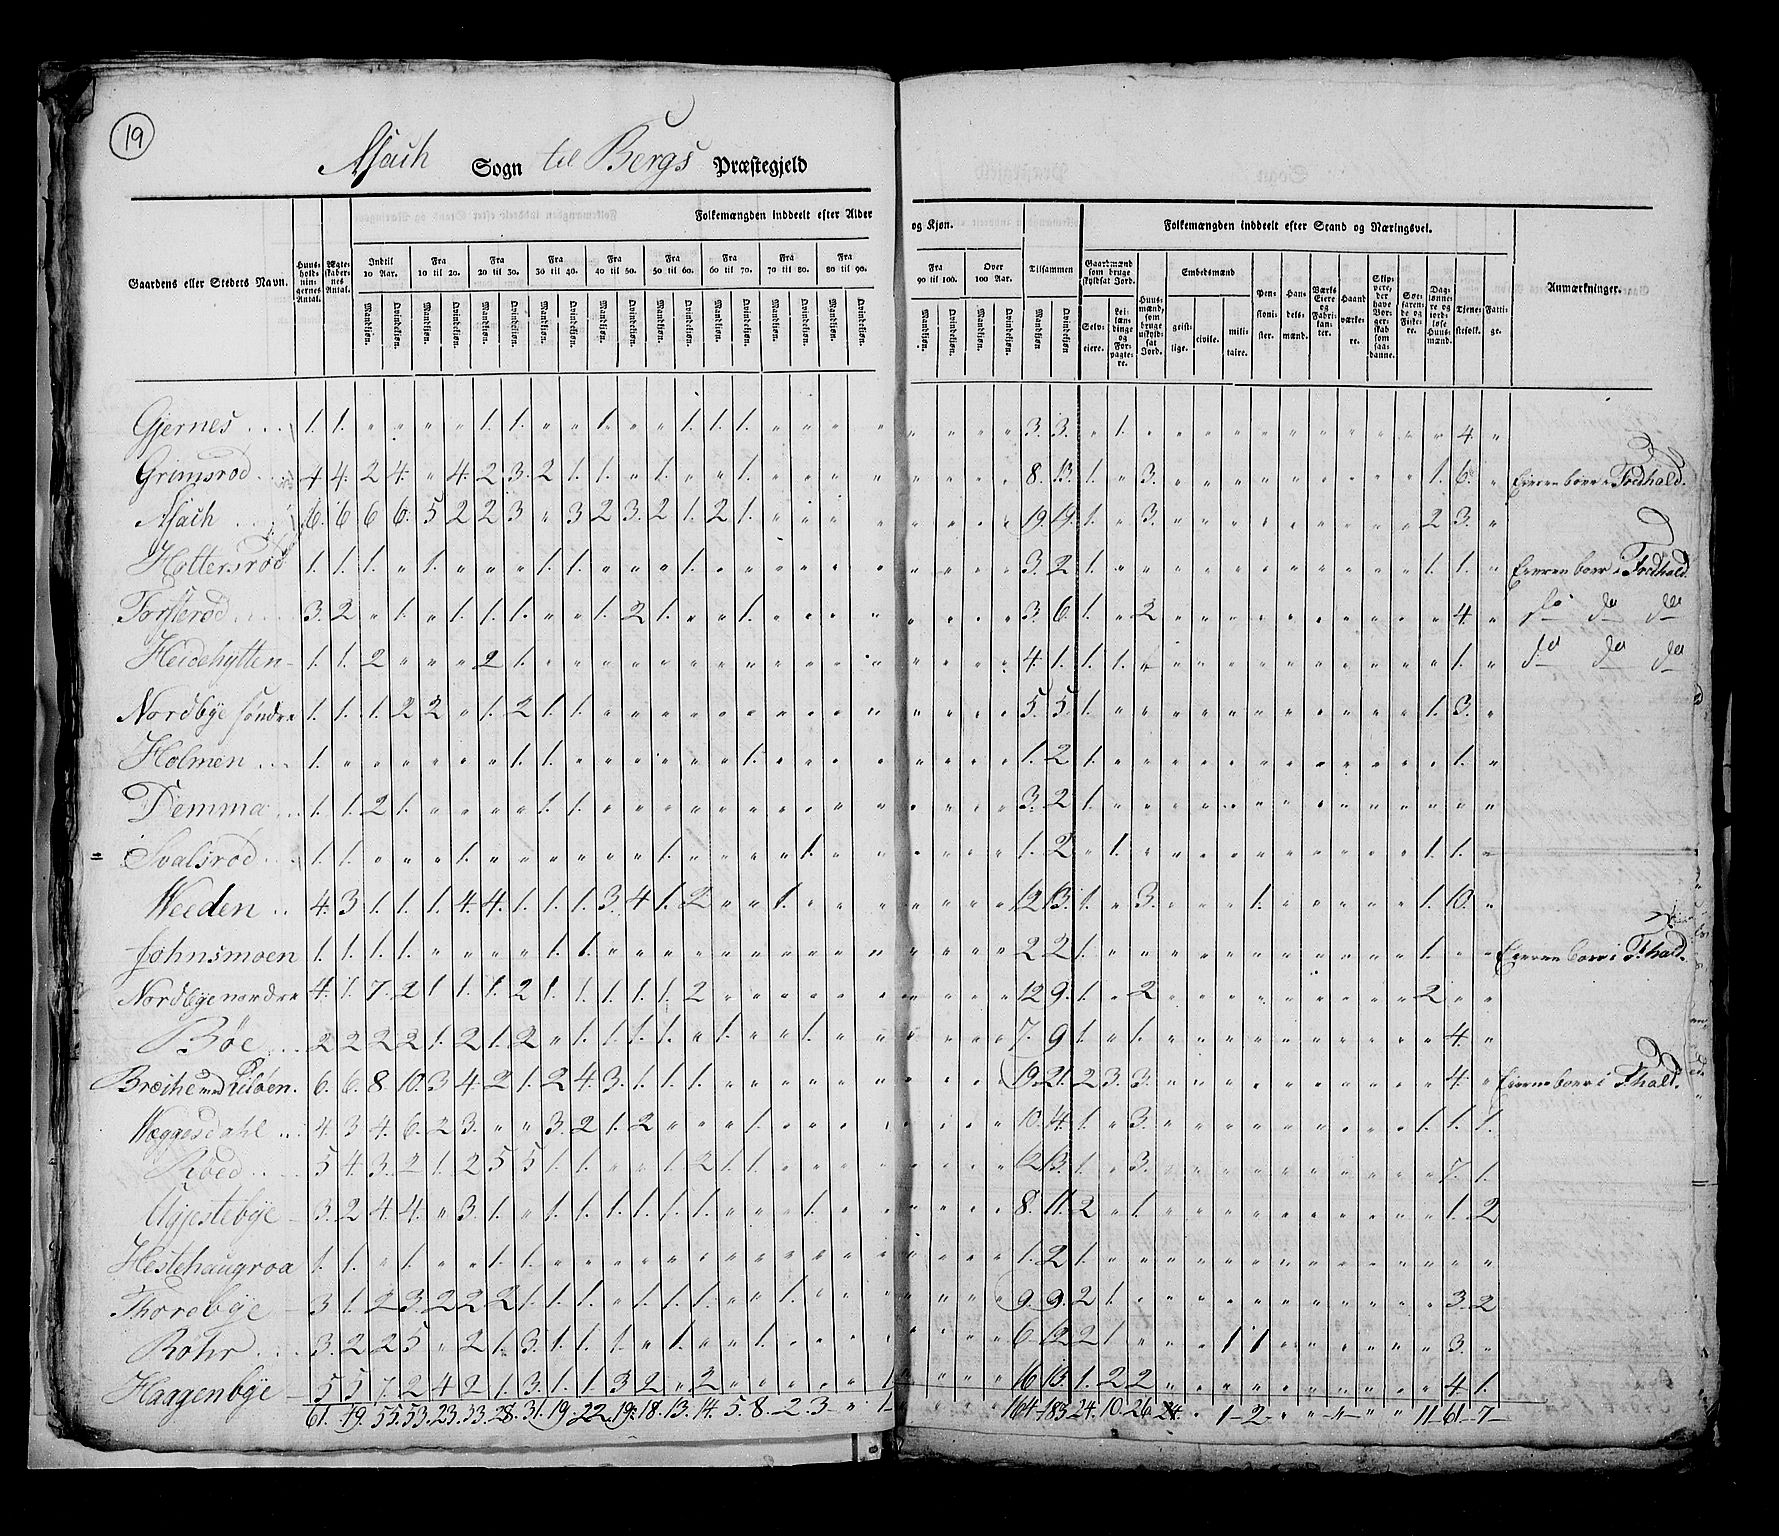 19
Asach Sogn til Bergs Præstegjeld
Folkemængden inddeelt efter Alder og Kjøn. Folkemængden inddeelt efter Stand og Næringsvei.
Gaardens eller Steders Navn. Huus-holdningernes Antal. Ægteskabernes Antal. Indtil 10 Aar. Fra 10 til 20. Fra 20 til 30. Fra 30 til 40. Fra 40 til 50. Fra 50 til 60. Fra 60 til 70. Fra 70 til 80. Fra 80 til 90. Fra 90 til 100. Over 100 Aar. Tilsammen Gaardmænd som bruge skyldsat Jord. Huusmænd, som bruge uskyldsat Jord. Embedsmænd Pensionister. Handelsmænd. Værks Eiere og Fabrikanter. Haandværkere. Skippere, der have Borgerskab som saadanne. Søefarende og Fiskere. Dagslønnere og jordløse Huusmænd. Tjenestefolk. Fattige. Anmærkninger.
Mandkjøn. Qvindekjøn. Mandkjøn. Qvindekjøn. Mandkjøn. Qvindekjøn. Mandkjøn. Qvindekjøn. Mandkjøn. Qvindekjøn. Mandkjøn. Qvindekjøn. Mandkjøn. Qvindekjøn. Mandkjøn. Qvindekjøn. Mandkjøn. Qvindekjøn. Mandkjøn. Qvindekjøn. Mandkjøn. Qvindekjøn. Mandkjøn Qvindekjøn. Selveiere. Leilændinge og Forpagtere. geistlige. civile. militaire.
Gjernes 1. 1. " " " " 1. 1. " " 1. " " 1. 1. 1. " " " " " " " " 3. 3. " 1. " " " " " " " " " " " 4. "
Grimsrød 4 4. 2 4. " 4. 2 3. 2 1. 1. " 1. " " 1. " " " " " " " " 8. 13. 1. " 3. " " " " " " " " " 1. 6. " Eieren boer i Fredhald.
Asach 6. 6 6 6. 5 2 2 3 " 3 2 3. 2 1. 2 1. " " " " " " " " 19. 19. 1. " 3. " " " " " " " " " 2 3. "
Hattersrød 1. 1. 1. " 1. " " " 1. 1. " " " 1. " " " " " " " " " " 3. 2 1. " " " " " " " " " " " 1. 1. " Eieren boer i Fredhald.
Torsterød 3. 2 " 1. " 1. 1. 1. " " 1. 2 1. " " 1. " " " " " " " " 3. 6. 1. " 2 " " " " " " " " " " 4. " do do do
Heidehytten 1. 1. 2 " " " 2 1. " " " " " " " " " " " " " " " " 4. 1. 1. 1. " " " " " " " " " " 1. " do do do
Nordbye søndre 1. 1. 1. 2 2 " 1. 2 1. 1. " " " " " " " " " " " " " " 5. 5 1. " " " " " " " " " " " 1. 3. "
Holmen 1. " " " " " " 1. 1. " " " " " " 1. " " " " " " " " 1. 2 1. " " " " " " " " " " " " 1. "
Demma 1. 1. 2 1. " " " " 1. 1. " " " " " " " " " " " " " " 3. 2 1. " " " " " " " " " " " " " "
= Svalsrød 1. 1. " " " 1. " " " " " " 1. " " " " 1. " " " " " " 1. 2 " 1. " " " " " " " " " " 1. 1. "
Weeden 4. 3. 1. 1. 1. 4. 4. 1. 1. 1. 3. 4. 1. 2 " " 1. " " " " " " " 12 13. 1. " 3. " " " 1. " " " " " 1. 10. "
Johnsmoen 1. 1. 1. 1. " " " " 1. 1. " " " " " " " " " " " " " " 2 2 1. " " " " " " " " " " " 1. " " Eieren boer i Fhald.
Nordbye nordre 4. 1. 7. 2 1 1. 1. 2 1. 1. 1. 1. 1. 2 " " " " " " " " " " 12 9. 1. " 2 " " " " " " " " " 2 " "
Bøe 2 2 2 2 1. 2 1. 2 " 1. 1. 1. 1. " 1. " " 1. " " " " " " 7. 9 1. " 1. " " " " " " " " " " 4. "
Bræche med Ulsøen. 6. 6. 8 10. 3 4. 2 1. 2 4. 3. 1. 1. 1. " " " " " " " " " " 19. 21. 2 3. 3. " " " " " " " " " " 4. " Eierne boer i Fhald.
Wæggesdahl 4. 3 4. 6. 2 3. " " 3. 2 1. 2 " " " 1. " " " " " " " " 10. 14. 1. " 3. " " " " " " " " " 1. 1. 1.
Roed 5 4. 3. 2 1. 2 5 5 1. 1. " " 1. 2 1. 1. " " " " " " " " 12 13. 1. " 3. " " " " " " " " " " 7. 1.
Ugjestebye 3. 2 4. 4. " 3. 1. " 1. 1. 1. 1. 1. 1. " " " 1. " " " " " " 8. 11. 2 " 1. " " " " " " " " " " 1. 2
Hestehaugroa 1. 1. " 1. " " 1. 1. " " " " " " " " " " " " " " " " 1. 2 1. " " " " " " " " " " " " " "
Thorebye 3. 1. 2 3. 2 2 2 1. 1. 1. " 1. 1. 1. " " 1. " " " " " " " 9. 9. 2 1. " " " " " " " " " " " 3. 2
Rohr 3. 2 2 5 " 2 1. 3. 1. 1. 1. " 1. " " 1. " " " " " " " " 6 12 2 1. " " " 1 1. " " " " " " 3. "
Haagenbye 5 5 7. 2 4 2 1. 3. 1. 1 3 2 " 2 " " " " " 1. " " " " 16 13. 1. 2 2 " " " " " " " " " " 4 1.
61. 49. 55. 53. 23. 33. 28. 31. 19. 22. 19. 18. 13. 14. 5. 8. 2. 3 " 1 " " " " 164 183 24. 10. 26. " " 1 2 " " " " " 11 61 7